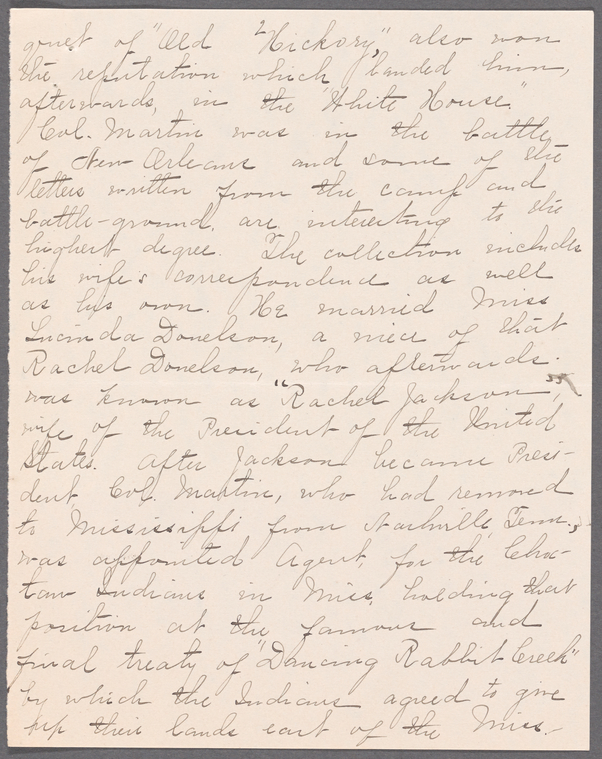 quet of "Old Hickory," also won
the reputation which landed him,
afterwards, in the "White House."
Col. Martin was in the battle
of New Orleans and some of the
letters written from the camp and
battle-ground, are interesting to the
highest degree. The collection includes
his wife's correspondence as well
as his own. He married Miss
Lucinda Donelson, a niece of that
Rachel Donelson, who afterwards
was known as "Rachel Jackson",
wife of the President of the United
States. After Jackson became Presi-
dent Col. Martin, who had removed
to Mississippi from Nashville, Tenn.,
was appointed Agent, for the Choc-
taw Indians in Miss, holding that
position at the famous and
final treaty of "Dancing Rabbit Creek"
by which the Indians agreed to give
up their lands east of the Miss-